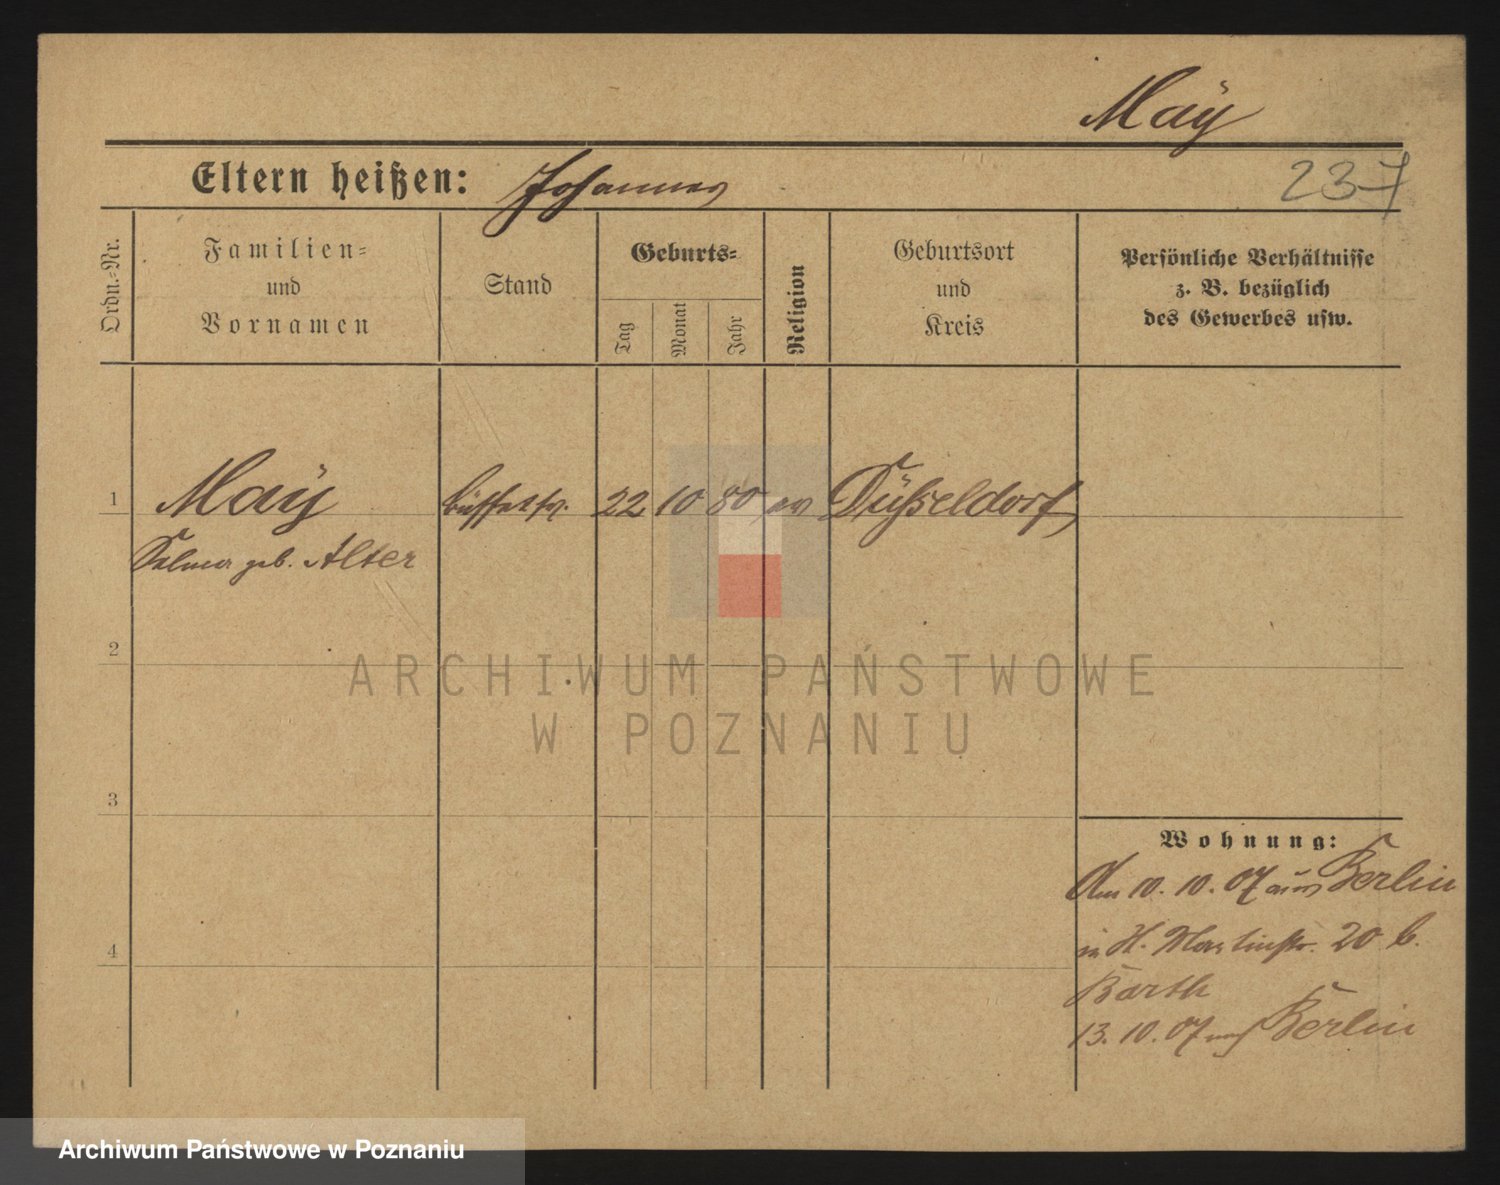 Maÿ
Eltern heißen: Johannes
237
Ordn.-Nr.
Familien-
und
Vornamen
Stand
Geburts-
Tag
Monat
Jahr
Religion
Geburtsort
und
Kreis
Persönliche Verhältnisse
z. B. bezüglich
des Gewerbes usw.
1 Maÿ 22 10 80 ev Düsseldorf
Selma geb. Alter
2
ARCHIWUM PAŃSTWOWE
W POZNANIU
3
Wohnung:
Am 10. 10. 07 aus Berlin
in H. Martinstr. 20 b.
4
Barth
13. 10. 07 nach Berlin
Archiwum Państwowe w Poznaniu